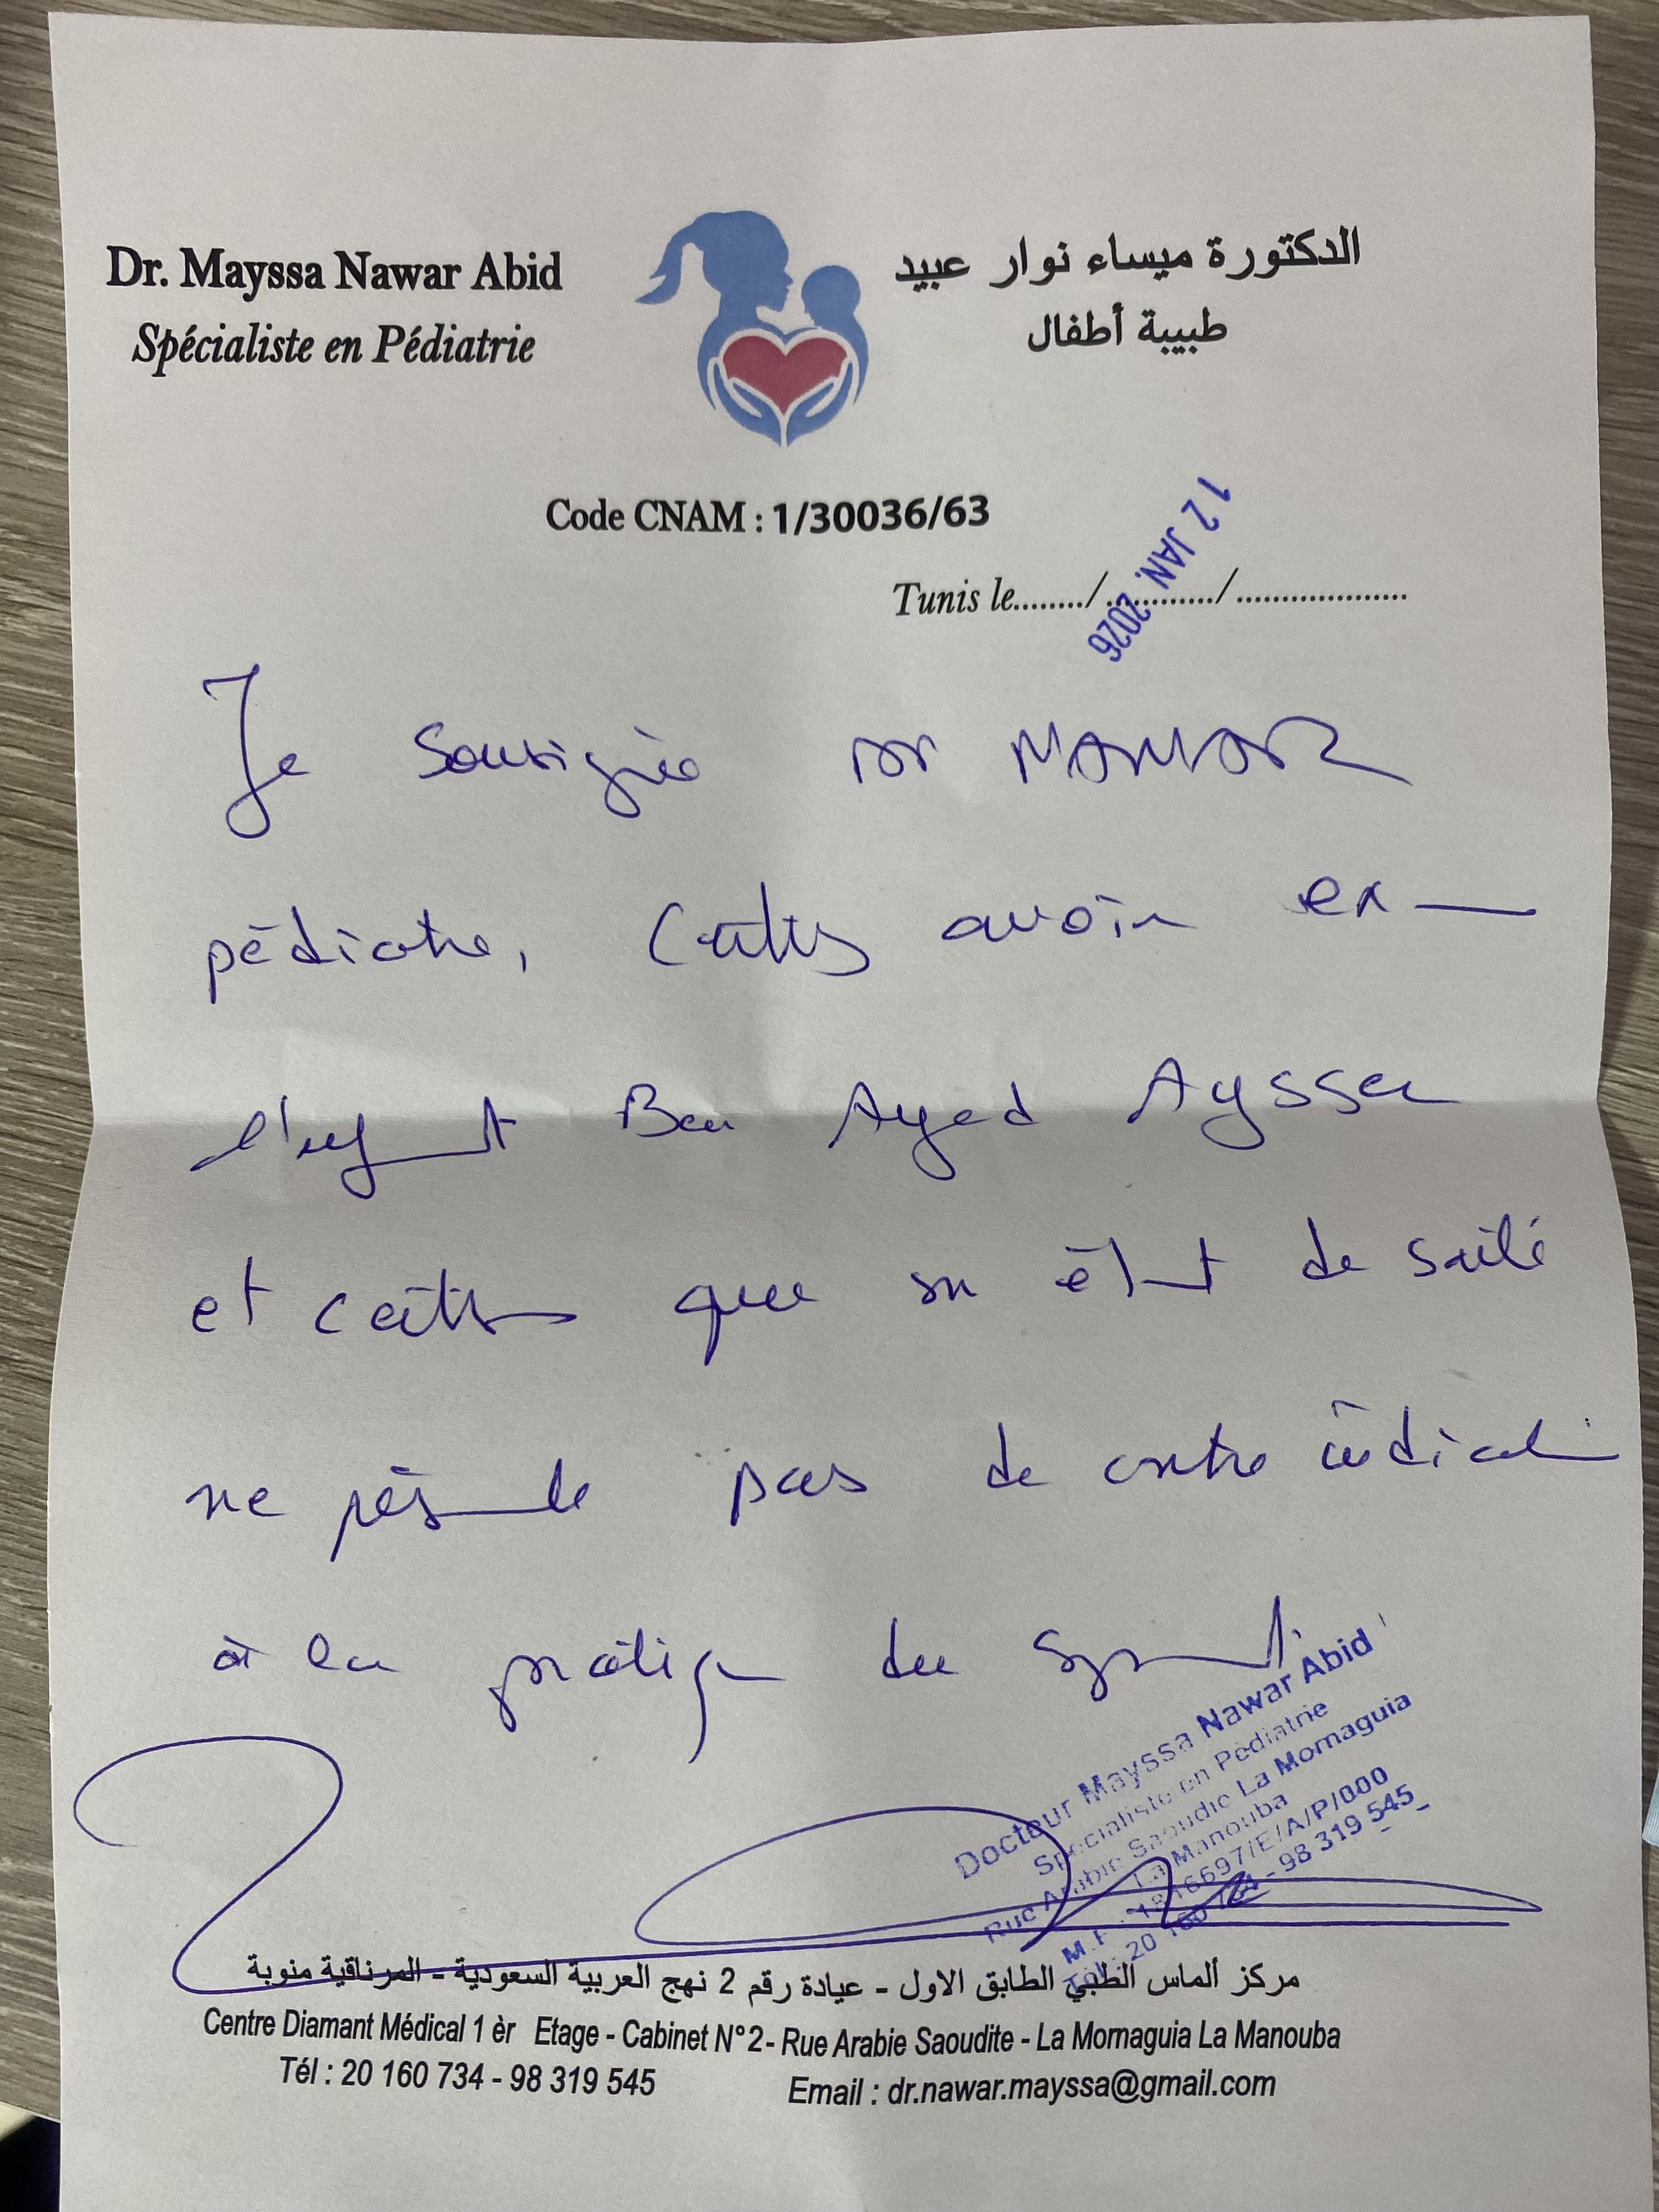 Dr. Mayssa Nawar Abid
Spécialiste en Pédiatrie
الدكتورة ميساء نوار عبيد
طبيبة أطفال
Code CNAM : 1/30036/63
Tunis le......../............/...................
12 JAN. 2026
Je sousignée Dr NAWAR
pédiatre, certifie avoir ex
l'enfant Ben Ayed Ayssen
et certifie que son état de santé
ne présente pas de contre indicati
à la pratique du
Docteur Mayssa Nawar Abid
Spécialiste en Pédiatrie
Rue Arabie Saoudie La Mornaguia
La Manouba
20 160 734 - 98 319 545
مركز ألماس الطبي الطابق الاول - عيادة رقم 2 نهج العربية السعودية - المرناقية منوبة
Centre Diamant Médical 1 èr Etage - Cabinet N°2 - Rue Arabie Saoudite - La Mornaguia La Manouba
Tél : 20 160 734 - 98 319 545
Email : dr.nawar.mayssa@gmail.com